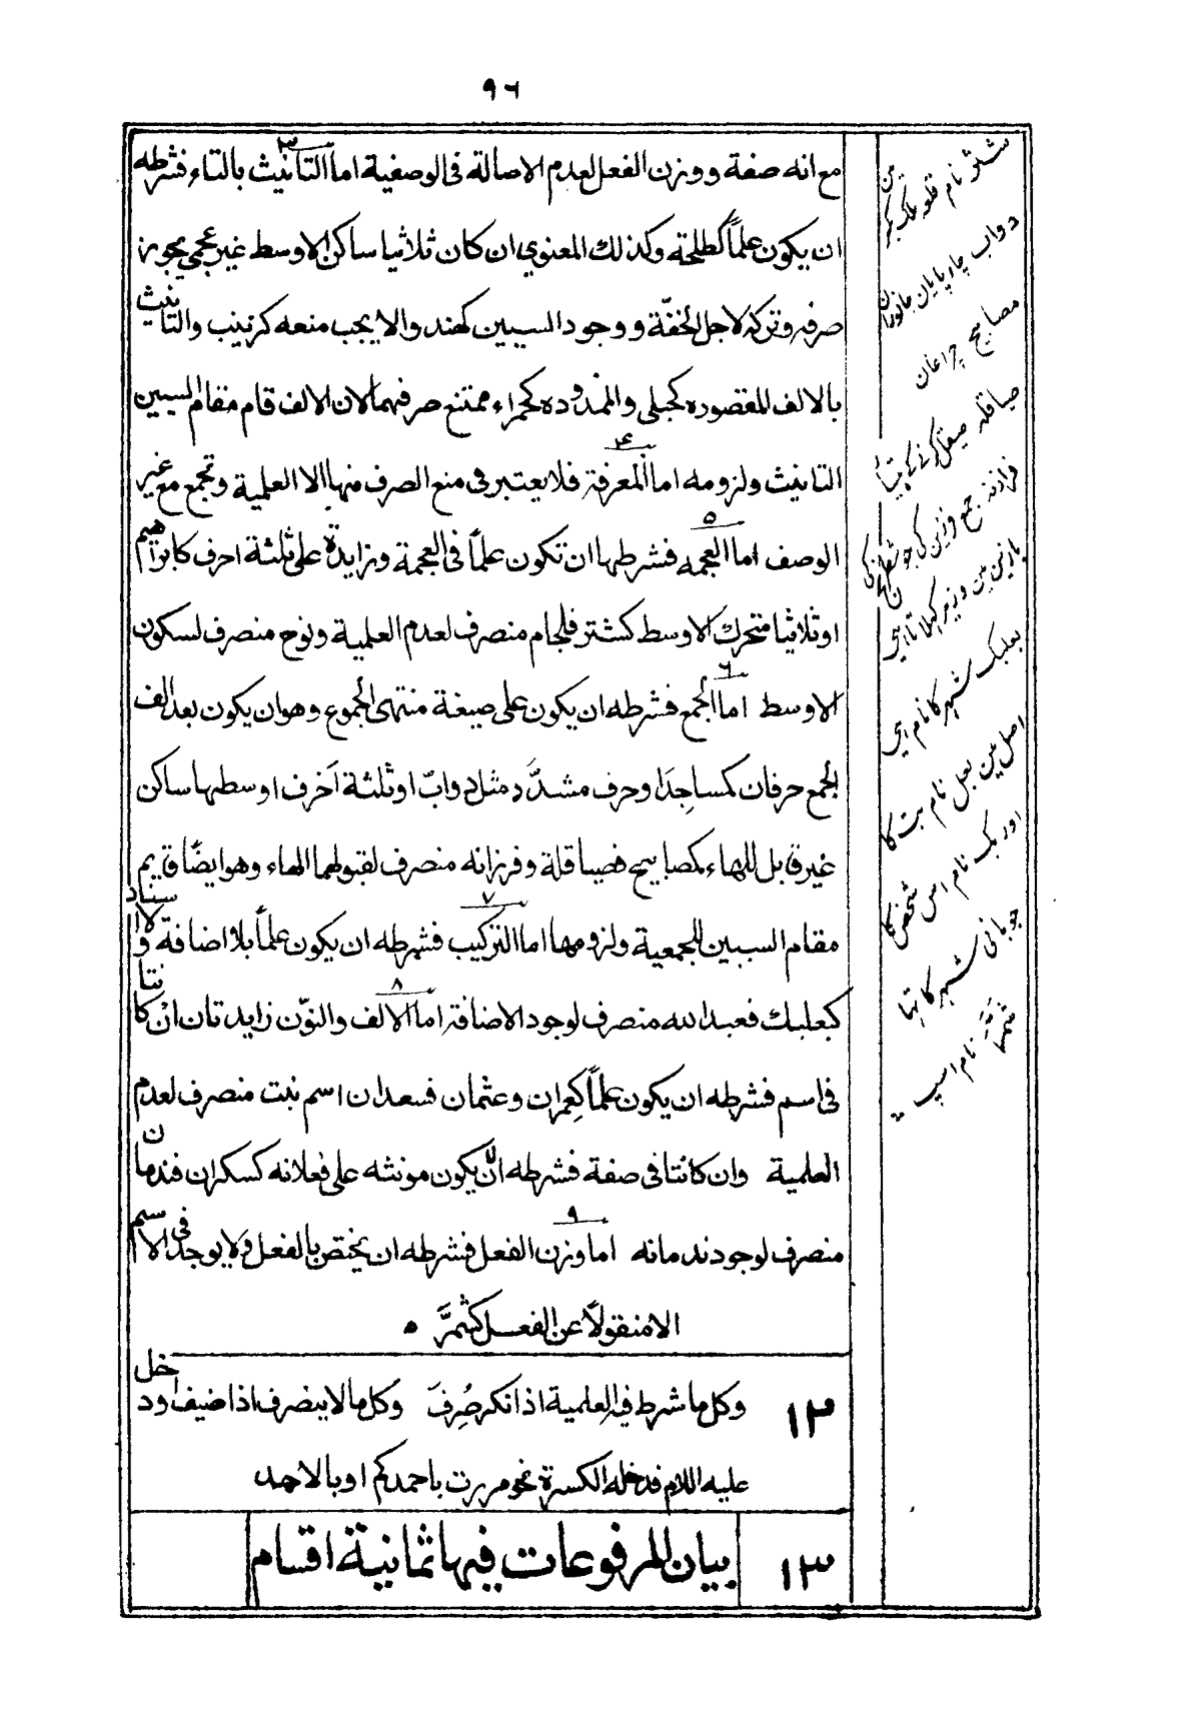 ٩٦
مع انه صفة ووزن الفعل لعدم الاصالة فى الوصفية اما التانيث بالتاء فشرطه
٣
ان يكون علماً كطلحة وكذلك المعنوي ان كان ثلاثيا ساكن الاوسط غير عجمي يجوز
صرفه وتركه لاجل الخفّة ووجود السببين كهند والا يجب منعه كزينب والتانيث
بالالف المقصوره كحبلى والممدوده كحمراء ممتنع صرفهما لان الالف قام مقام السببين
التانيث ولزومه اما المعرفة فلا يعتبر فى منع الصرف منها الا العلمية وتجمع مع غير
٤
الوصف اما العجمه فشرطها ان تكون علماً فى العجمة وزايدة على ثلثة احرف كابراهيم
٥
او ثلاثيا متحرك الاوسط كشتر فلجام منصرف لعدم العلمية ونوح منصرف لسكون
الاوسط اما الجمع فشرطه ان يكون على صيغة منتهى الجموع وهو ان يكون بعد الف
٦
الجمع حرفان كمساجِدَ او حرف مشدَّد مثل دوابّ او ثلثة اَحرف اوسطها ساكن
غير قابل للهاء كمصابيح فصياقلة وفرزانه منصرف لقبولهما الهاء وهو ايضًا قايم
مقام السببين للجمعية ولزومها اما التركيب فشرطه ان يكون علماً بلا اضافة والاسناد
٧
كبعلبك فعبد الله منصرف لوجود الاضافة اما الالف والنوّن زايدتان انْ كانتا
٨
فى اسم فشرطه ان يكون علماً كعِمران وعثمان فسعدان اسم نبت منصرف لعدم
العلمية وان كانتا فى صفة فشرطه ان لا يكون مونثه على فعلانه كسكران فندمان
منصرف لوجود ندمانه اما وزن الفعل فشرطه ان يختص بالفعل ولا يوجد فى الاسم
٩
الا منقولاً عن الفعل كشمَّرَ ه
١٢ وكل ما شرط فيه العلمية اذا نكر صُرِفَ وكل ما لا ينصرف اذا ضيف او دخل
عليه اللام فدخله الكسرة نحو مررت باحمدكم او بالاحمد
١٣ بيان المرفوعات فيها ثمانية اقسام
دواب چارپایان جانوران
مصابیح چراغان
بعلبک شہر کا نام ہی
اصل مین بعل نام بت کا
اور بک نام اس شخص کا
جو بانی شہر کا تہا
نام اسپ